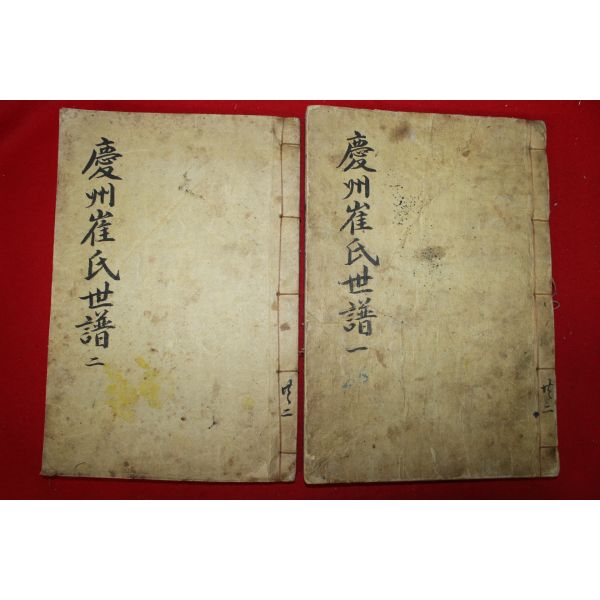 慶州崔氏世譜 一
共二
慶州崔氏世譜 二
共二